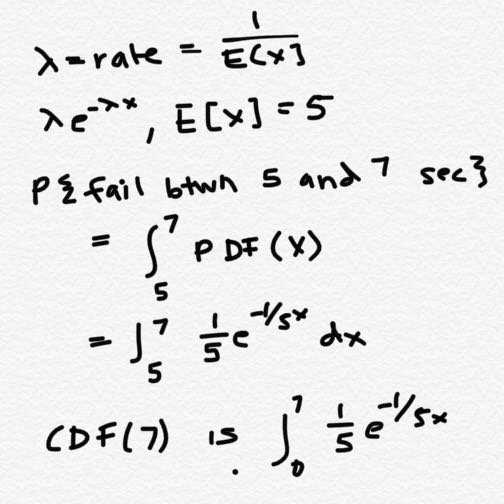 λ = rate = 1/E[X]
λe^-λx, E[X] = 5
P{fail btwn 5 and 7 sec}
= ∫_5^7 PDF(X)
= ∫_5^7 1/5 e^-1/5x dx
CDF(7) is ∫_0^7 1/5 e^-1/5x